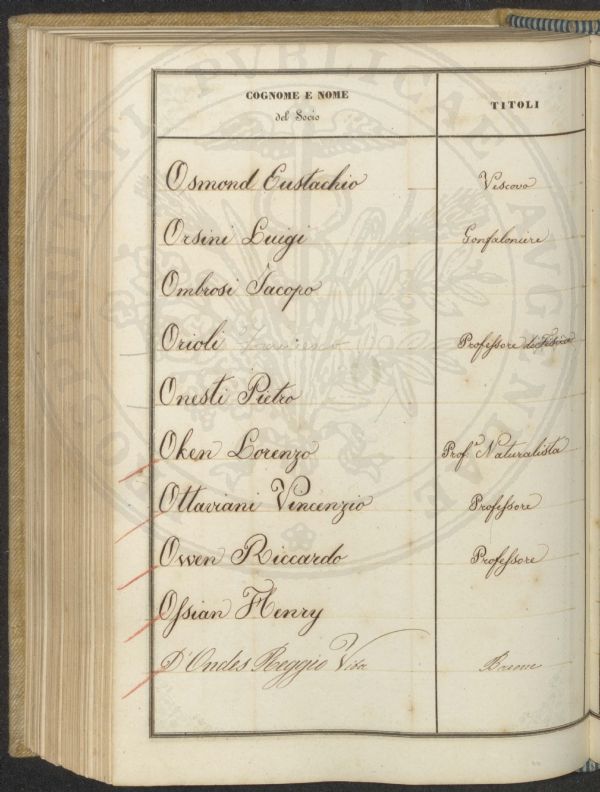 COGNOME E NOME
del Socio
TITOLI
Osmond Eustachio Vescovo
Orsini Luigi Gonfaloniere
Ombrosi Jacopo
Orioli Francesco Professore di Fisica
Onesti Pietro
Oken Lorenzo Prof.e Naturalista
Ottaviani Vincenzio Professore
Owen Riccardo Professore
Ossian Henry
D'Ondes Reggio Vito Barone
PROSPERITATI PVBLICAE AVGENDAE